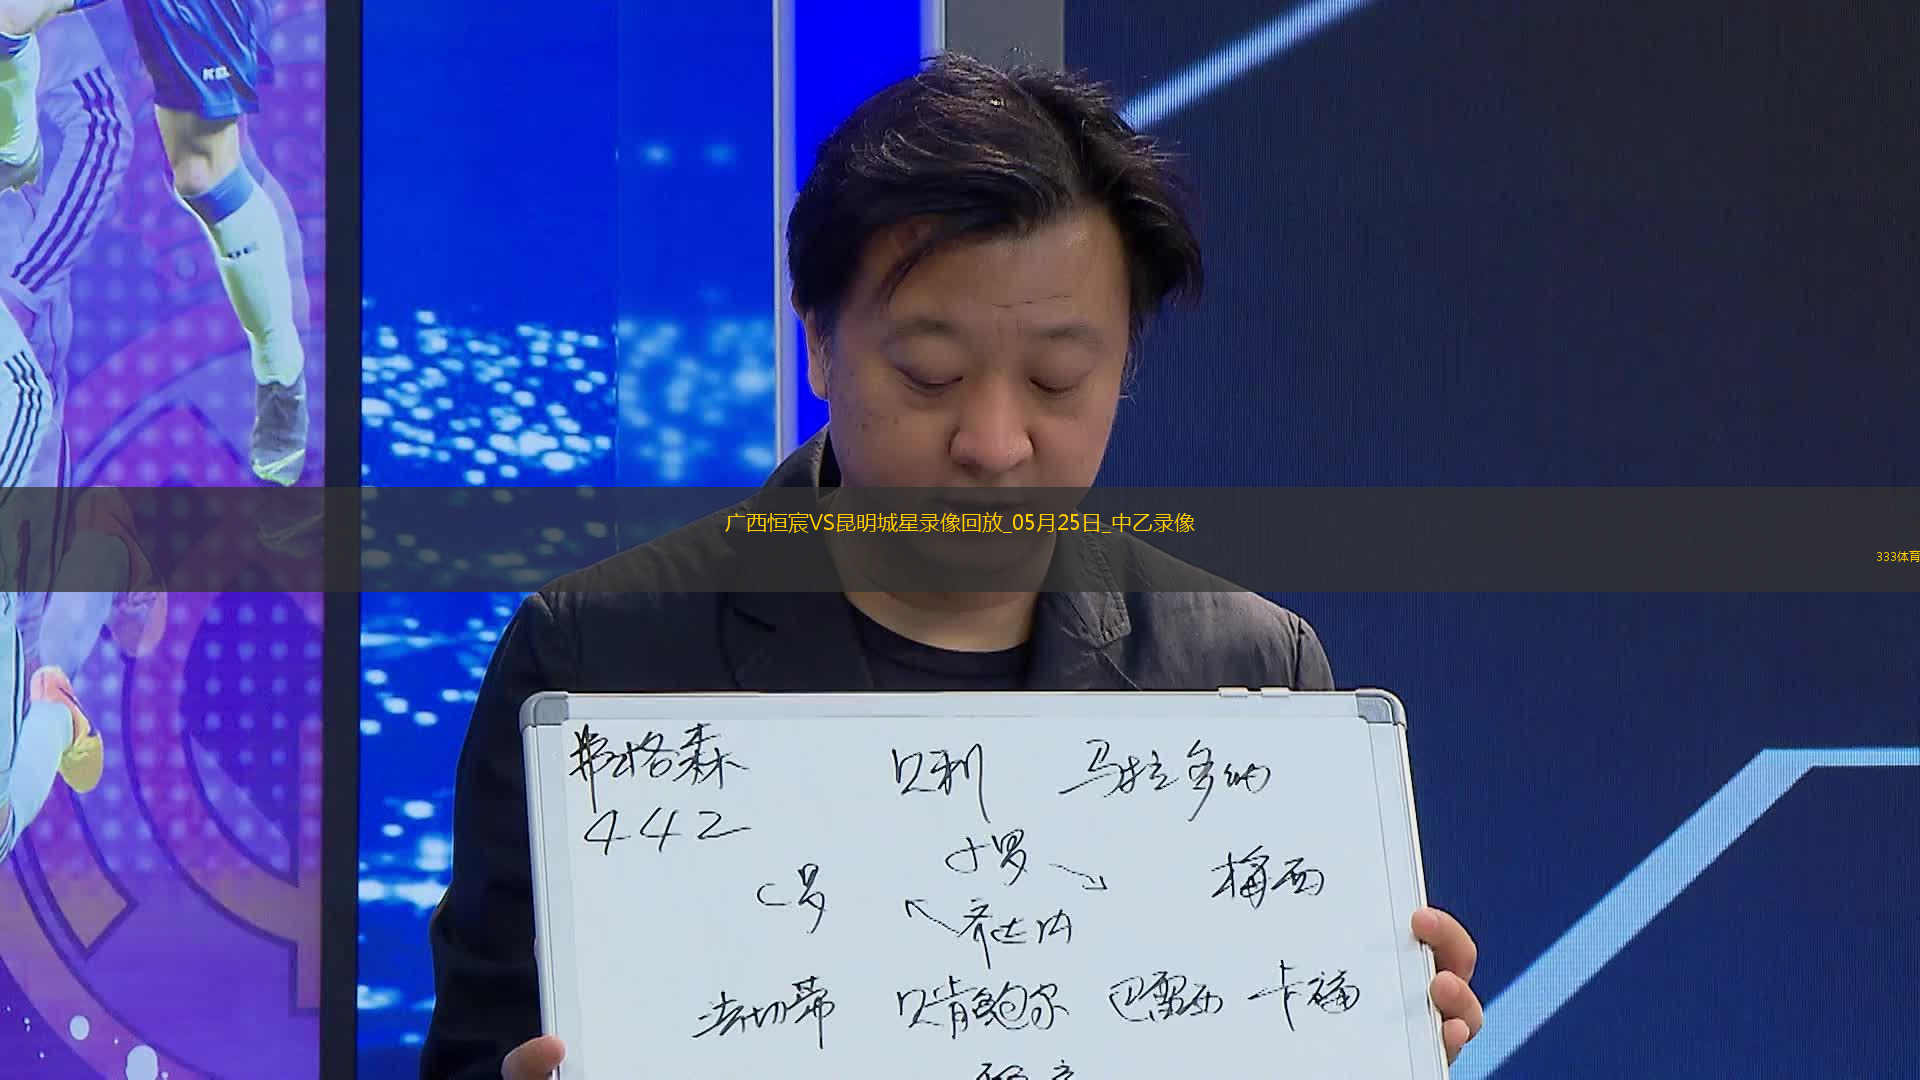 KELME
广西恒宸VS昆明城星录像回放_05月25日_中乙录像
333体育
弗格森 贝利 马拉多纳
442
小罗
C罗 梅西
齐达内
法切蒂 贝肯鲍尔 巴雷西 卡福